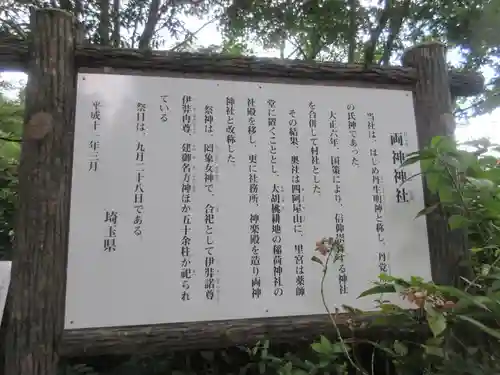 両神神社
当社は、はじめ丹生明神と称し、丹党
の氏神であった。
大正六年、国策により、信仰崇拝する神社
を合併して村社とした。
その結果、奥社は四阿屋山に、里宮は薬師
堂に置くこととし、大胡桃耕地の稲荷神社の
社殿を移し、更に社務所、神楽殿を造り両神
神社と改称した。
祭神は、罔象女神で、合祀として伊弉諸尊
伊弉冉尊、建御名方神ほか五十余柱が祀られ
ている。
祭日は、九月二十八日である。
平成十一年三月
埼玉県